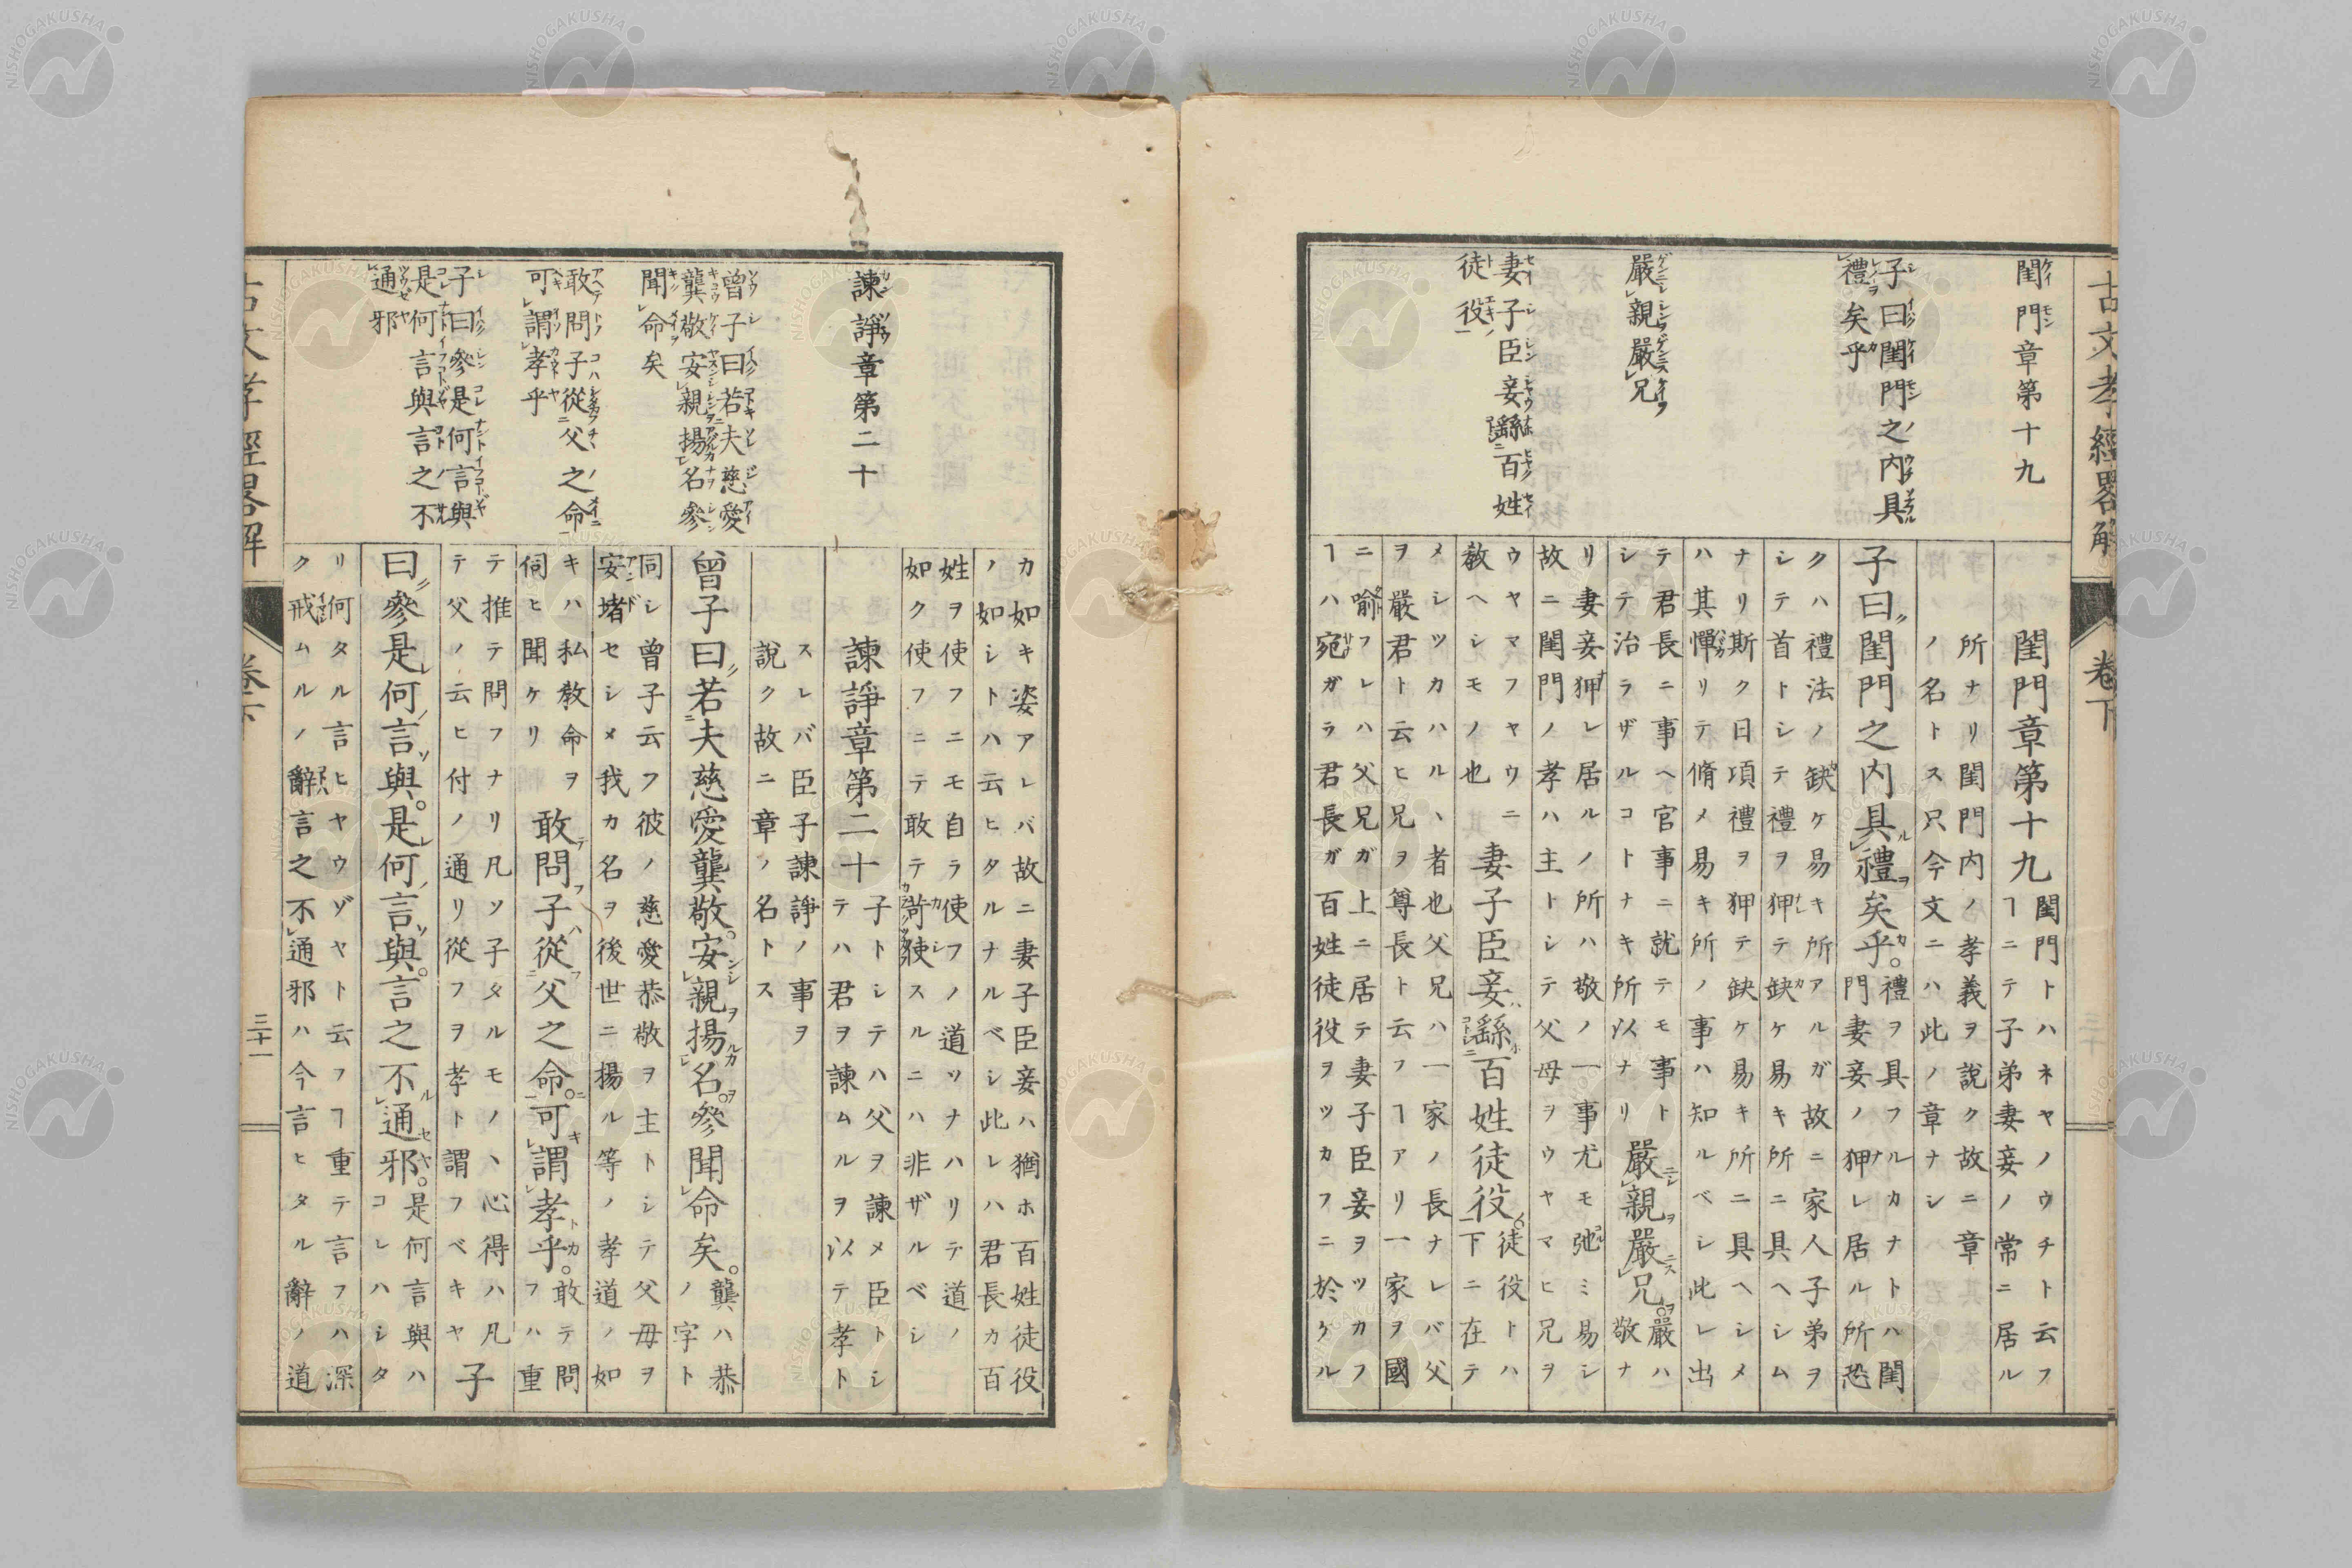 古文孝經畧解
卷下
閨門章第十九
子曰閨門之内具
禮矣乎
嚴親嚴兄
妻子臣妾繇百姓
徒役
閨門章第十九
閨門トハネヤノウチト云フ
ヿニテ子弟妻妾ノ常ニ居ル
所ナリ閨門内ノ孝義ヲ說ク故ニ章
ノ名トス只今文ニハ此ノ章ナシ
子曰閨門之内具禮矣乎。
禮ヲ具フルカナトハ閨
門妻妾ノ狎レ居ル所恐
クハ禮法ノ缺ケ易キ所アルガ故ニ家人子弟ヲ
シテ首トシテ禮ヲ狎テ缺ケ易キ所ニ具ヘシム
ナリ斯ク日項禮ヲ狎テ缺ケ易キ所ニ具ヘシメ
ハ其憚リテ脩メ易キ所ノ事ハ知ルベシ此レ出
テ君長ニ事ヘ官事ニ就テモ事ト
シテ治ラザルコトナキ所以ナリ
嚴親嚴兄。
嚴ハ
敬ナ
リ妻妾狎レ居ルノ所ハ敬ノ一事尤モ弛ミ易シ
故ニ閨門ノ孝ハ主トシテ父母ヲウヤマヒ兄ヲ
ウヤマフヤウニ
敎ヘシモノ也
妻子臣妾繇百姓徒役。
徒役トハ
下ニ在テ
メシツカハルヽ者也父兄ハ一家ノ長ナレバ父
ヲ嚴君ト云ヒ兄ヲ尊長ト云フヿアリ一家ヲ國
ニ喩フレハ父兄ガ上ニ居テ妻子臣妾ヲツカフ
ヿハ宛ガラ君長ガ百姓徒役ヲツカフニ於ケル
諫諍章第二十
曾子曰若夫慈愛
龔敬安親揚名參
聞命矣
敢問子從父之命
可謂孝乎
子曰參是何言與
是何言與言之不
通邪
カ如キ姿アレバ故ニ妻子臣妾ハ猶ホ百姓徒役
ノ如シトハ云ヒタルナルベシ此レハ君長カ百
姓ヲ使フニモ自ラ使フノ道ツナハリテ道ノ
如ク使フニテ敢テ苛使スルニハ非ザルベシ
諫諍章第二十
子トシテハ父ヲ諫メ臣トシ
テハ君ヲ諫ムルヲ以テ孝ト
スレバ臣子諫諍ノ事ヲ
說ク故ニ章ノ名トス
曾子曰若夫慈愛龔敬。安親揚名。參聞命矣。
龔ハ恭
ノ字ト
同シ曾子云フ彼ノ慈愛恭敬ヲ主トシテ父母ヲ
安堵セシメ我カ名ヲ後世ニ揚ル等ノ孝道ノ如
キハ私敎命ヲ
伺ヒ聞ケリ
敢問子從父之命。可謂孝乎。
敢テ問
フハ重
テ推テ問フナリ凡ソ子タルモノヽ心得ハ凡
テ父ノ云ヒ付ノ通リ從フヲ孝ト謂フベキヤ
子
曰參是何言與。是何言與。言之不通邪。
是何言與ハ
コレハシタ
リ何タル言ヒヤウゾヤト云フヿ重テ言フハ深
ク戒ムルノ辭言之不通邪ハ今言ヒタル辭ノ道
古文孝經畧解
卷下
三十一